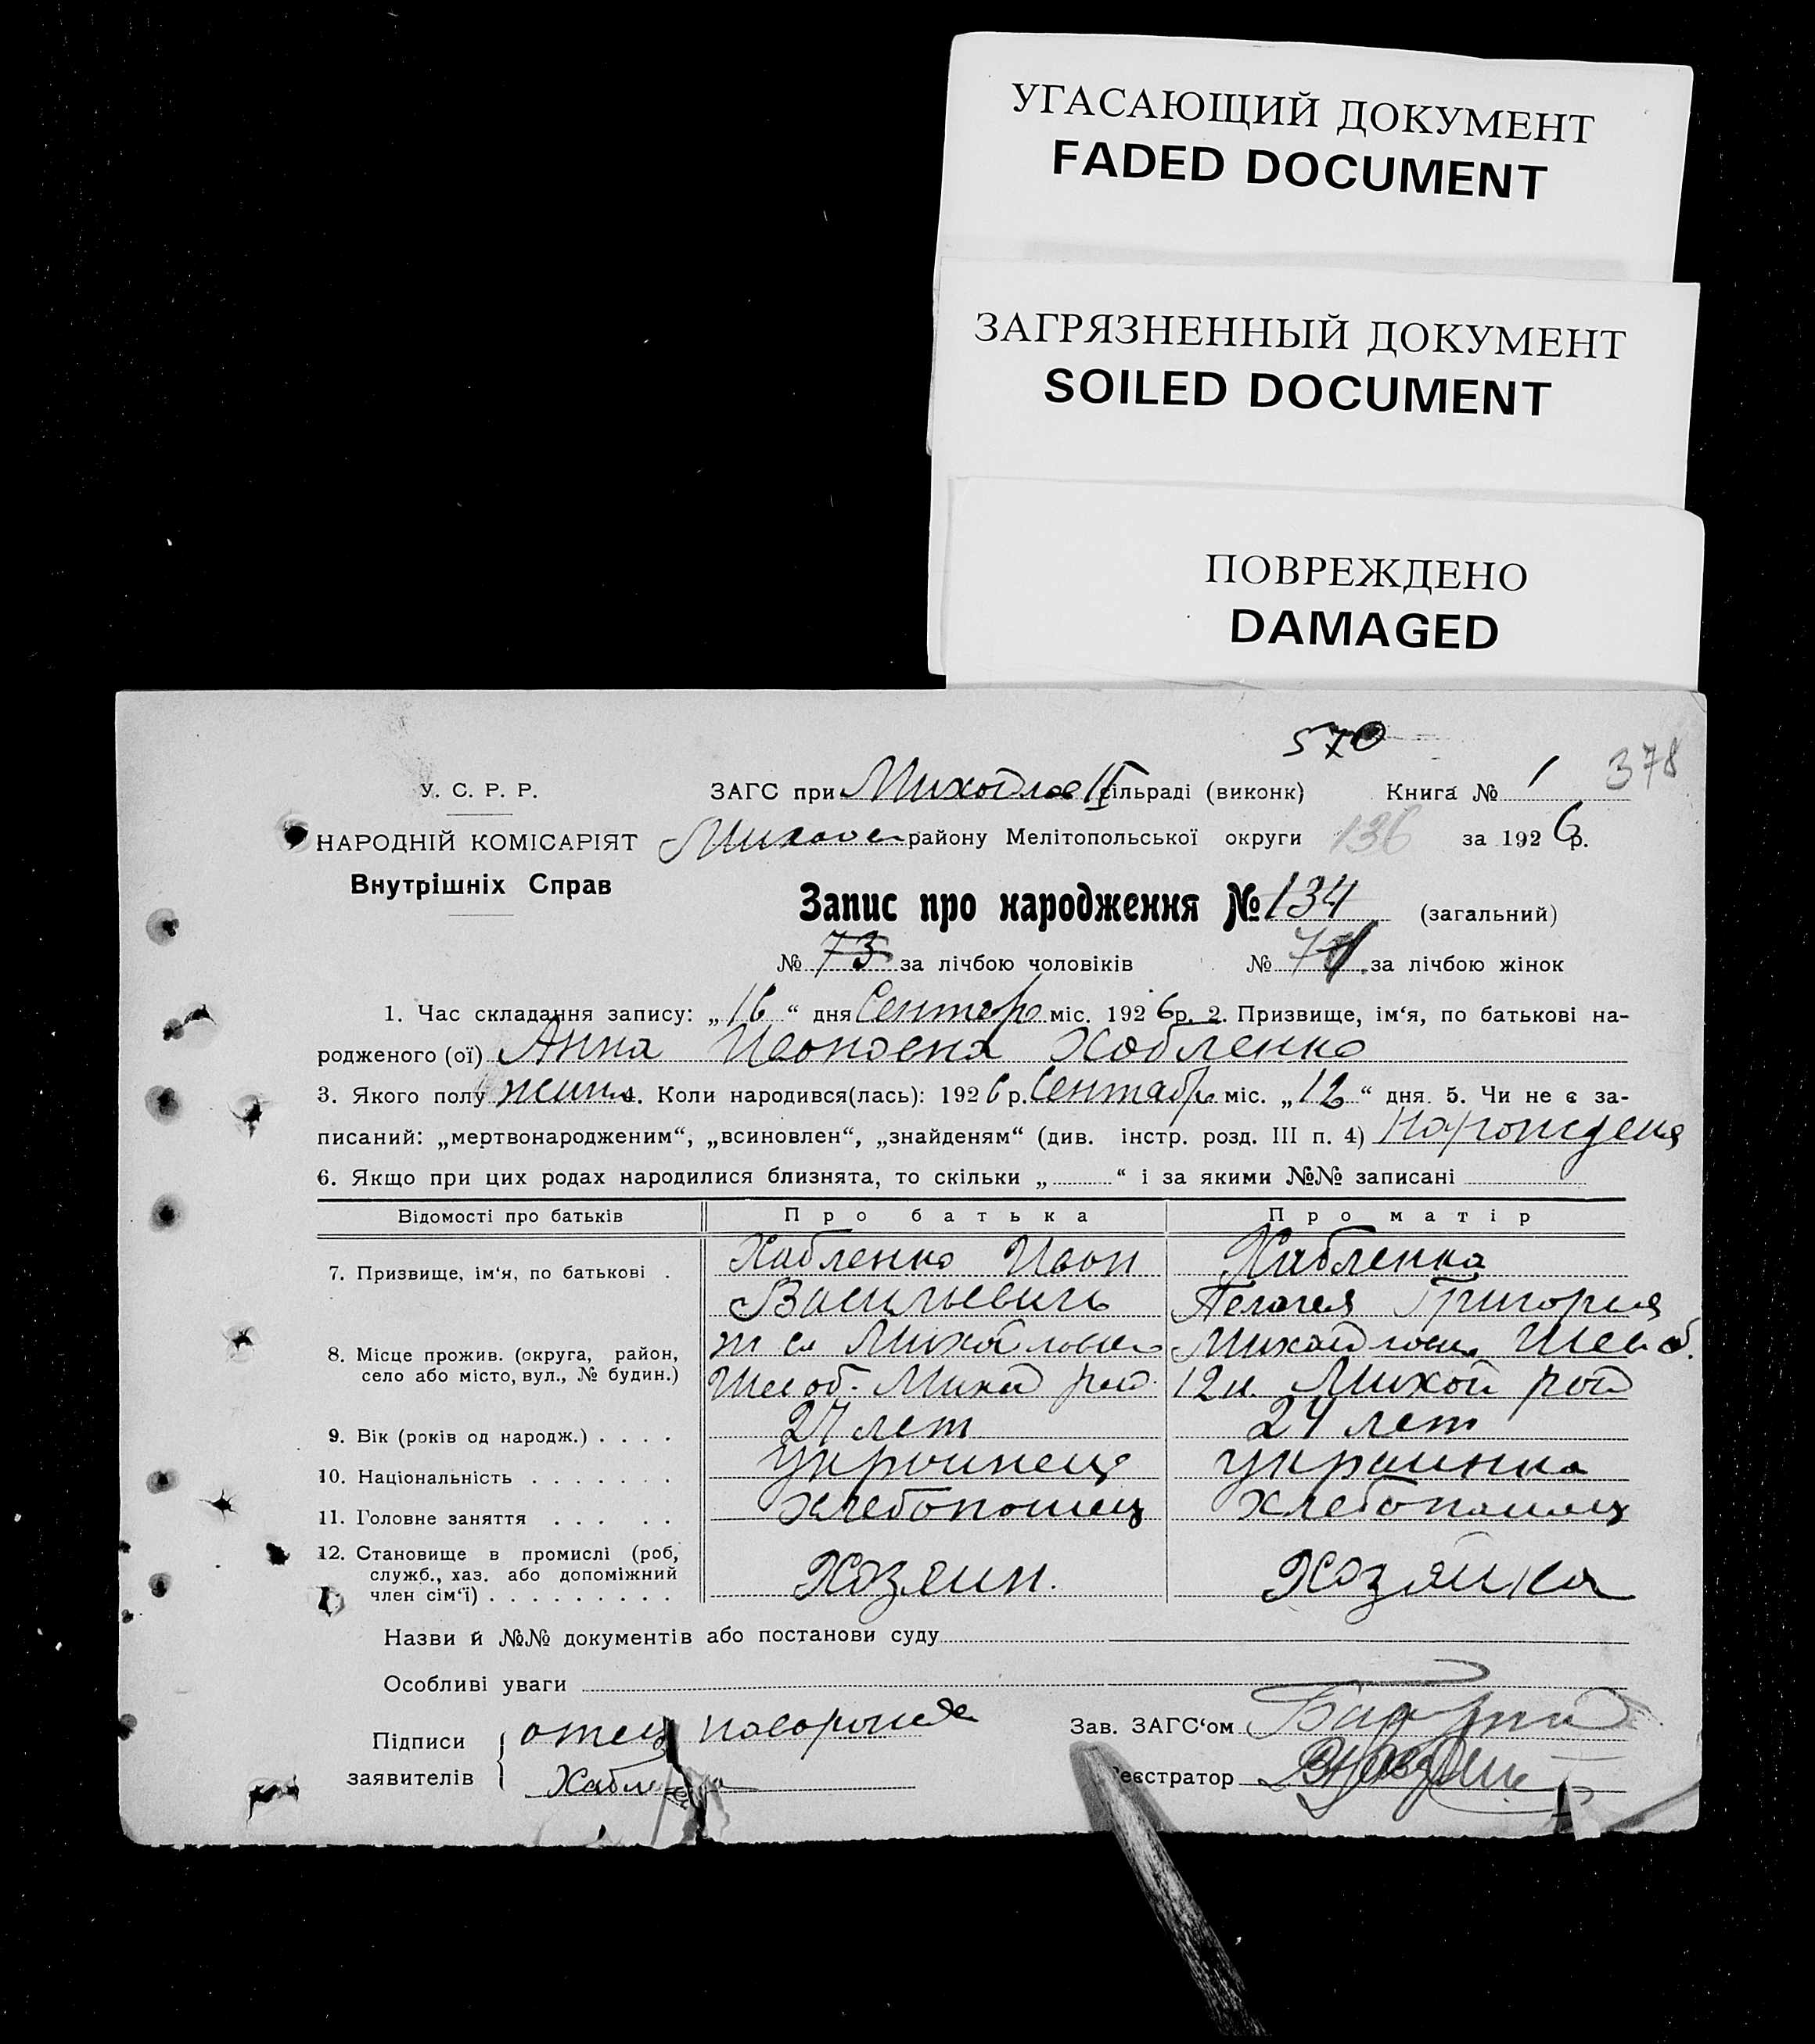 УГАСАЮЩИЙ ДОКУМЕНТ
FADED DOCUMENT
ЗАГРЯЗНЕННЫЙ ДОКУМЕНТ
SOILED DOCUMENT
ПОВРЕЖДЕНО
DAMAGED
570
378
У. С. Р. Р.
ЗАГС при Михайлов II сільраді (виконк) Книга № 1
НАРОДНІЙ КОМІСАРІЯТ
району Мелітопольської округи 136 за 1926 р.
Внутрішніх Справ
Запис про народження № 134 (загальний)
№ 73 за лічбою чоловіків № 71 за лічбою жінок
1. Час складання запису: „16“ дня Сентяр міс. 1926 р. 2. Призвище, ім‘я, по батькові на-
родженого (ої) Анна Ивановна Хабленко
3. Якого полу жин 4. Коли народився(лась): 1926 р. Сентабр міс. „12“ дня. 5. Чи не є за-
писаний: „мертвонародженим“, „всиновлен“, „знайденям“ (див. інстр. розд. III п. 4)
6. Якщо при цих родах народилися близнята, то скільки „ “ і за якими №№ записані
Відомості про батьків Про батька Про матір
7. Призвище, ім‘я, по батькові . Хабленко Иван Хабленка
Васильевичь Пелагея Григорьея
8. Місце прожив. (округа, район, село або місто, вул., № будин.)
Михайловка
9. Вік (років од народж.) . . . . 27 лет 24 лет
10. Національність . . . . . . . украинець украинка
11. Головне заняття . . . . . хлебопашец хлебопашец
12. Становище в промислі (роб, служб., хаз. або допоміжний член сім‘ї) . . . . . . . . . Хозяин. Хозяйка
Назви й №№ документів або постанови суду
Особливі уваги
Підписи заявителів
отец
Хабленко
Зав. ЗАГС‘ом
Реєстратор